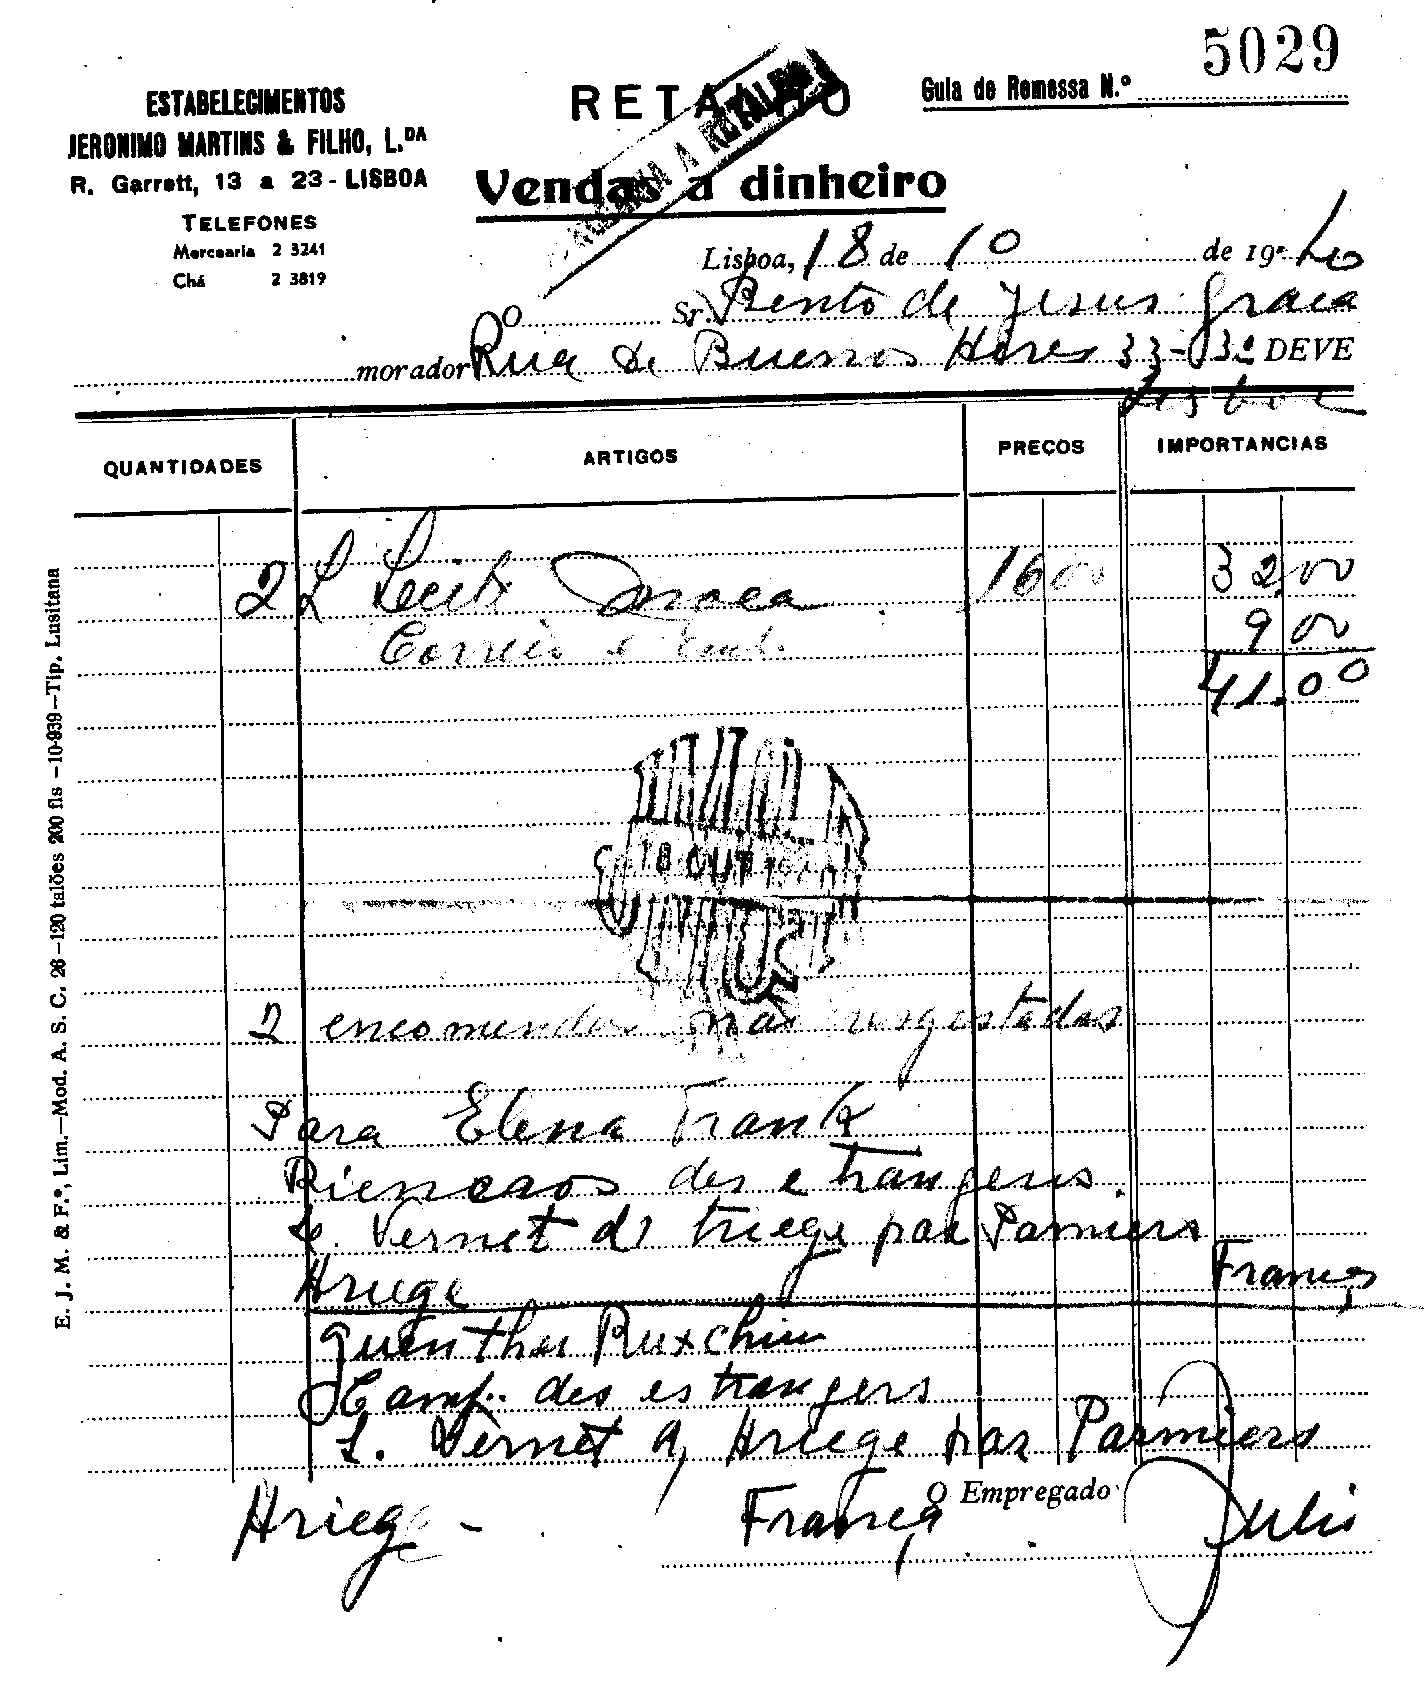 5029
ESTABELECIMENTOS
JERONIMO MARTINS & FILHO, L.DA
R. Garrett, 13 a 23 - LISBOA
TELEFONES
Mercearia 2 3241
Chá 2 3819
RETALHO
Guia de Remessa N.º
Vendas a dinheiro
Lisboa, 18 de 10 de 1940
O Sr. Bento de Jesus Graca
morador Rua de Buenos Aires 33-3º DEVE
Lisboa
QUANTIDADES ARTIGOS PREÇOS IMPORTANCIAS
2 L 1600 32.00
Correio e Emb. 9.00
41.00
18 OUT
2 encomendas não registadas
Para Elena Frank
Rieucros des etrangers.
L. Vernet d' triege par Pamiers
Ariege França
Guenther Ruxchin
Camp. des estrangers
L. Vernet d, Ariege par Pamiers
Ariege - França
O Empregado
Julio
E. J. M. & F.º, Lim.—Mod. A. S. C. 26—120 talões 200 fls—10-939—Tip. Lusitana